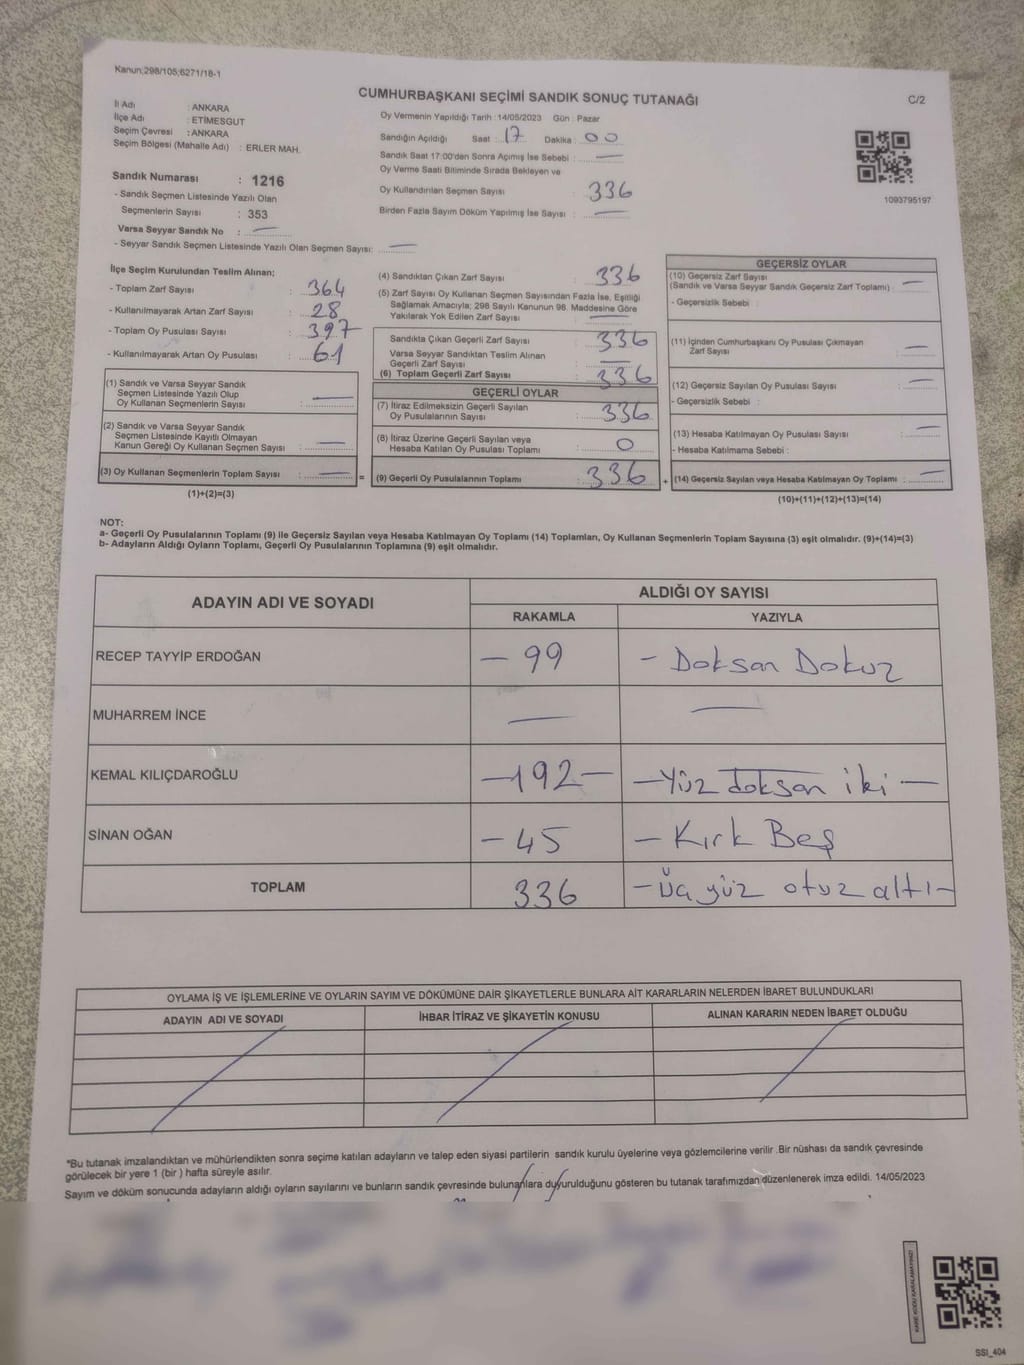 Kanun;298/105;6271/18-1
CUMHURBAŞKANI SEÇİMİ SANDIK SONUÇ TUTANAĞI
C/2
İl Adı : ANKARA
İlçe Adı : ETİMESGUT
Seçim Çevresi : ANKARA
Seçim Bölgesi (Mahalle Adı) : ERLER MAH.
Sandık Numarası : 1216
- Sandık Seçmen Listesinde Yazılı Olan
Seçmenlerin Sayısı : 353
Varsa Seyyar Sandık No : —
- Seyyar Sandık Seçmen Listesinde Yazılı Olan Seçmen Sayısı: —
Oy Vermenin Yapıldığı Tarih : 14/05/2023 Gün : Pazar
Sandığın Açıldığı Saat : 17 Dakika : 00
Sandık Saat 17:00'den Sonra Açımış İse Sebebi : —
Oy Verme Saati Bitiminde Sırada Bekleyen ve
Oy Kullandırılan Seçmen Sayısı : 336
Birden Fazla Sayım Döküm Yapılmış İse Sayısı : —
1093795197
İlçe Seçim Kurulundan Teslim Alınan;
- Toplam Zarf Sayısı : 364
- Kullanılmayarak Artan Zarf Sayısı : 28
- Toplam Oy Pusulası Sayısı : 397
- Kullanılmayarak Artan Oy Pusulası : 61
(1) Sandık ve Varsa Seyyar Sandık
Seçmen Listesinde Yazılı Olup
Oy Kullanan Seçmenlerin Sayısı : —
(2) Sandık ve Varsa Seyyar Sandık
Seçmen Listesinde Kayıtlı Olmayan
Kanun Gereği Oy Kullanan Seçmen Sayısı : —
(3) Oy Kullanan Seçmenlerin Toplam Sayısı : — =
(1)+(2)=(3)
(4) Sandıktan Çıkan Zarf Sayısı : 336
(5) Zarf Sayısı Oy Kullanan Seçmen Sayısından Fazla İse, Eşitliği
Sağlamak Amacıyla; 298 Sayılı Kanunun 98. Maddesine Göre
Yakılarak Yok Edilen Zarf Sayısı : —
Sandıkta Çıkan Geçerli Zarf Sayısı : 336
Varsa Seyyar Sandıktan Teslim Alınan
Geçerli Zarf Sayısı : —
(6) Toplam Geçerli Zarf Sayısı : 336
GEÇERLİ OYLAR
(7) İtiraz Edilmeksizin Geçerli Sayılan
Oy Pusulalarının Sayısı : 336
(8) İtiraz Üzerine Geçerli Sayılan veya
Hesaba Katılan Oy Pusulası Toplamı : 0
(9) Geçerli Oy Pusulalarının Toplamı : 336 +
GEÇERSİZ OYLAR
(10) Geçersiz Zarf Sayısı
(Sandık ve Varsa Seyyar Sandık Geçersiz Zarf Toplamı) : —
- Geçersizlik Sebebi :
(11) İçinden Cumhurbaşkanı Oy Pusulası Çıkmayan
Zarf Sayısı : —
(12) Geçersiz Sayılan Oy Pusulası Sayısı : —
- Geçersizlik Sebebi :
(13) Hesaba Katılmayan Oy Pusulası Sayısı : —
- Hesaba Katılmama Sebebi :
(14) Geçersiz Sayılan veya Hesaba Katılmayan Oy Toplamı : —
(10)+(11)+(12)+(13)=(14)
NOT:
a- Geçerli Oy Pusulalarının Toplamı (9) ile Geçersiz Sayılan veya Hesaba Katılmayan Oy Toplamı (14) Toplamları, Oy Kullanan Seçmenlerin Toplam Sayısına (3) eşit olmalıdır. (9)+(14)=(3)
b- Adayların Aldığı Oyların Toplamı, Geçerli Oy Pusulalarının Toplamına (9) eşit olmalıdır.
ADAYIN ADI VE SOYADI
ALDIĞI OY SAYISI
RAKAMLA YAZIYLA
RECEP TAYYİP ERDOĞAN – 99 – Doksan Dokuz
MUHARREM İNCE — —
KEMAL KILIÇDAROĞLU —192— —Yüz doksan iki —
SİNAN OĞAN – 45 – Kırk Beş
TOPLAM 336 – Üç yüz otuz altı –
OYLAMA İŞ VE İŞLEMLERİNE VE OYLARIN SAYIM VE DÖKÜMÜNE DAİR ŞİKAYETLERLE BUNLARA AİT KARARLARIN NELERDEN İBARET BULUNDUKLARI
ADAYIN ADI VE SOYADI İHBAR İTİRAZ VE ŞİKAYETİN KONUSU ALINAN KARARIN NEDEN İBARET OLDUĞU
*Bu tutanak imzalandıktan ve mühürlendikten sonra seçime katılan adayların ve talep eden siyasi partilerin sandık kurulu üyelerine veya gözlemcilerine verilir .Bir nüshası da sandık çevresinde
görülecek bir yere 1 (bir ) hafta süreyle asılır.
Sayım ve döküm sonucunda adayların aldığı oyların sayılarını ve bunların sandık çevresinde bulunanlara duyurulduğunu gösteren bu tutanak tarafımızdan düzenlenerek imza edildi. 14/05/2023
KARE KODU KARALAMAYINIZ!
SSI_404